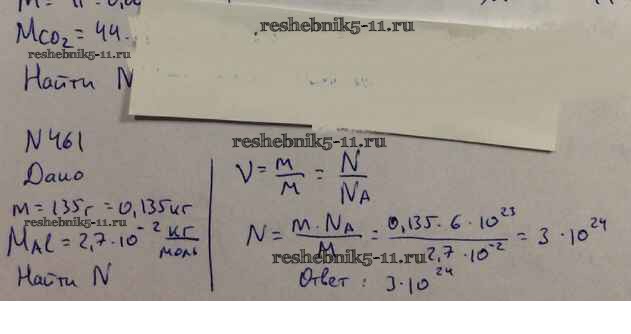 M CO₂ = 44.
reshebnik5-11.ru
reshebnik5-11.ru
Найти N
N461
reshebnik5-11.ru
Дано
m = 135г = 0,135кг
reshebnik5-11.ru
M Al = 2,7·10⁻² кг/моль
Найти N
ν = m/M = N/N_A
N = m·N_A/M = 0,135·6·10²³/2,7·10⁻² = 3·10²⁴
reshebnik5-11.ru
Ответ: 3·10²⁴